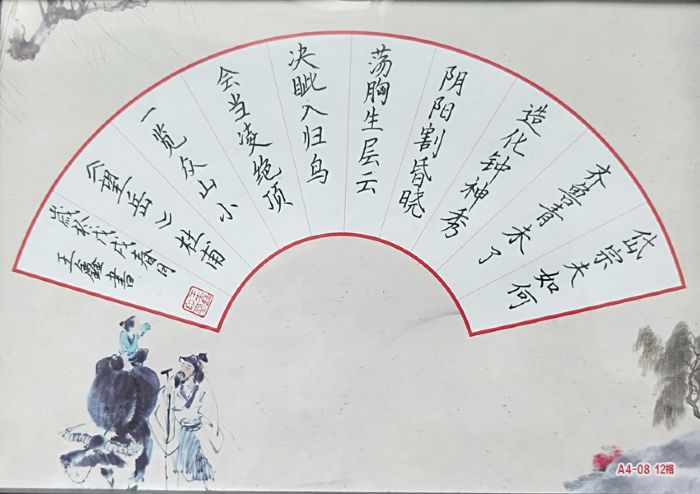 岱宗夫如何
齐鲁青未了
造化钟神秀
阴阳割昏晓
荡胸生层云
决眦入归鸟
会当凌绝顶
一览众山小
《望岳》杜甫
岁於戊戌春月
王鑫书
A4-08 12格